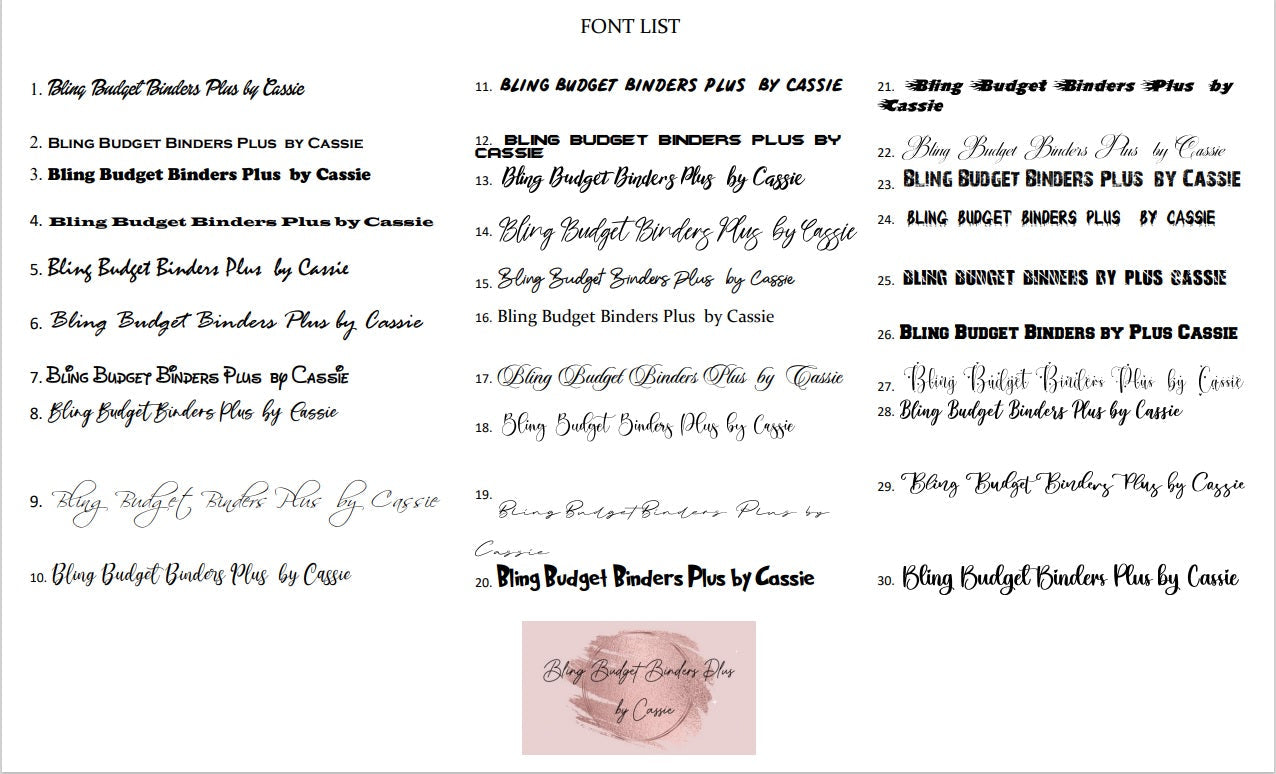 FONT LIST
1. Bling Budget Binders Plus by Cassie
2. BLING BUDGET BINDERS PLUS BY CASSIE
3. Bling Budget Binders Plus by Cassie
4. Bling Budget Binders Plus by Cassie
5. Bling Budget Binders Plus by Cassie
6. Bling Budget Binders Plus by Cassie
7. Bling Budget Binders Plus by Cassie
8. Bling Budget Binders Plus by Cassie
9. Bling Budget Binders Plus by Cassie
10. Bling Budget Binders Plus by Cassie
11. BLING BUDGET BINDERS PLUS BY CASSIE
12. BLING BUDGET BINDERS PLUS BY
CASSIE
13. Bling Budget Binders Plus by Cassie
14. Bling Budget Binders Plus by Cassie
15. Bling Budget Binders Plus by Cassie
16. Bling Budget Binders Plus by Cassie
17. Bling Budget Binders Plus by Cassie
18. Bling Budget Binders Plus by Cassie
19. Bling Budget Binders Plus by
Cassie
20. Bling Budget Binders Plus by Cassie
21. Bling Budget Binders Plus by
Cassie
22. Bling Budget Binders Plus by Cassie
23. BLING BUDGET BINDERS PLUS BY CASSIE
24. BLING BUDGET BINDERS PLUS BY CASSIE
25. BLING BUDGET BINNERS BY PLUS CASSIE
26. BLING BUDGET BINDERS BY PLUS CASSIE
27. Bling Budget Binders Plus by Cassie
28. Bling Budget Binders Plus by Cassie
29. Bling Budget Binders Plus by Cassie
30. Bling Budget Binders Plus by Cassie
Bling Budget Binders Plus
by Cassie